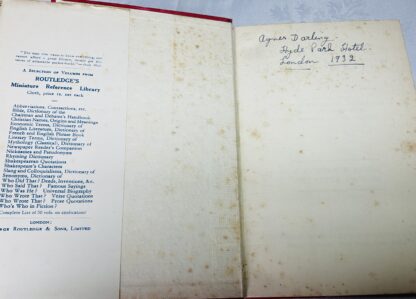 A SELECTION OF VOLUMES FROM
ROUTLEDGE'S
Miniature Reference Library
Cloth, price 1s. net each
Abbreviations, Contractions, etc.
Bible, Dictionary of the
Chairman and Debater's Handbook
Christian Names, Origins and Meanings
Economic Terms, Dictionary of
English Literature, Dictionary of
French and English Phrase Book
Literary Terms, Dictionary of
Mythology (Classical), Dictionary of
Newspaper Reader's Companion
Nicknames and Pseudonyms
Rhyming Dictionary
Shakespearean Quotations
Shakespeare's Characters
Slang and Colloquialisms, Dictionary of
Synonyms, Dictionary of
Who Did That? Deeds, Inventions, &c.
Who Said That? Famous Sayings
Who Was He? Universal Biography
Who Wrote That? Verse Quotations
Who Wrote That? Prose Quotations
Who's Who in Fiction?
Complete List of 50 vols. on application)
LONDON:
ROUTLEDGE & SONS, LIMITED
Agnes Darling.
Hyde Park Hotel.
London 1932